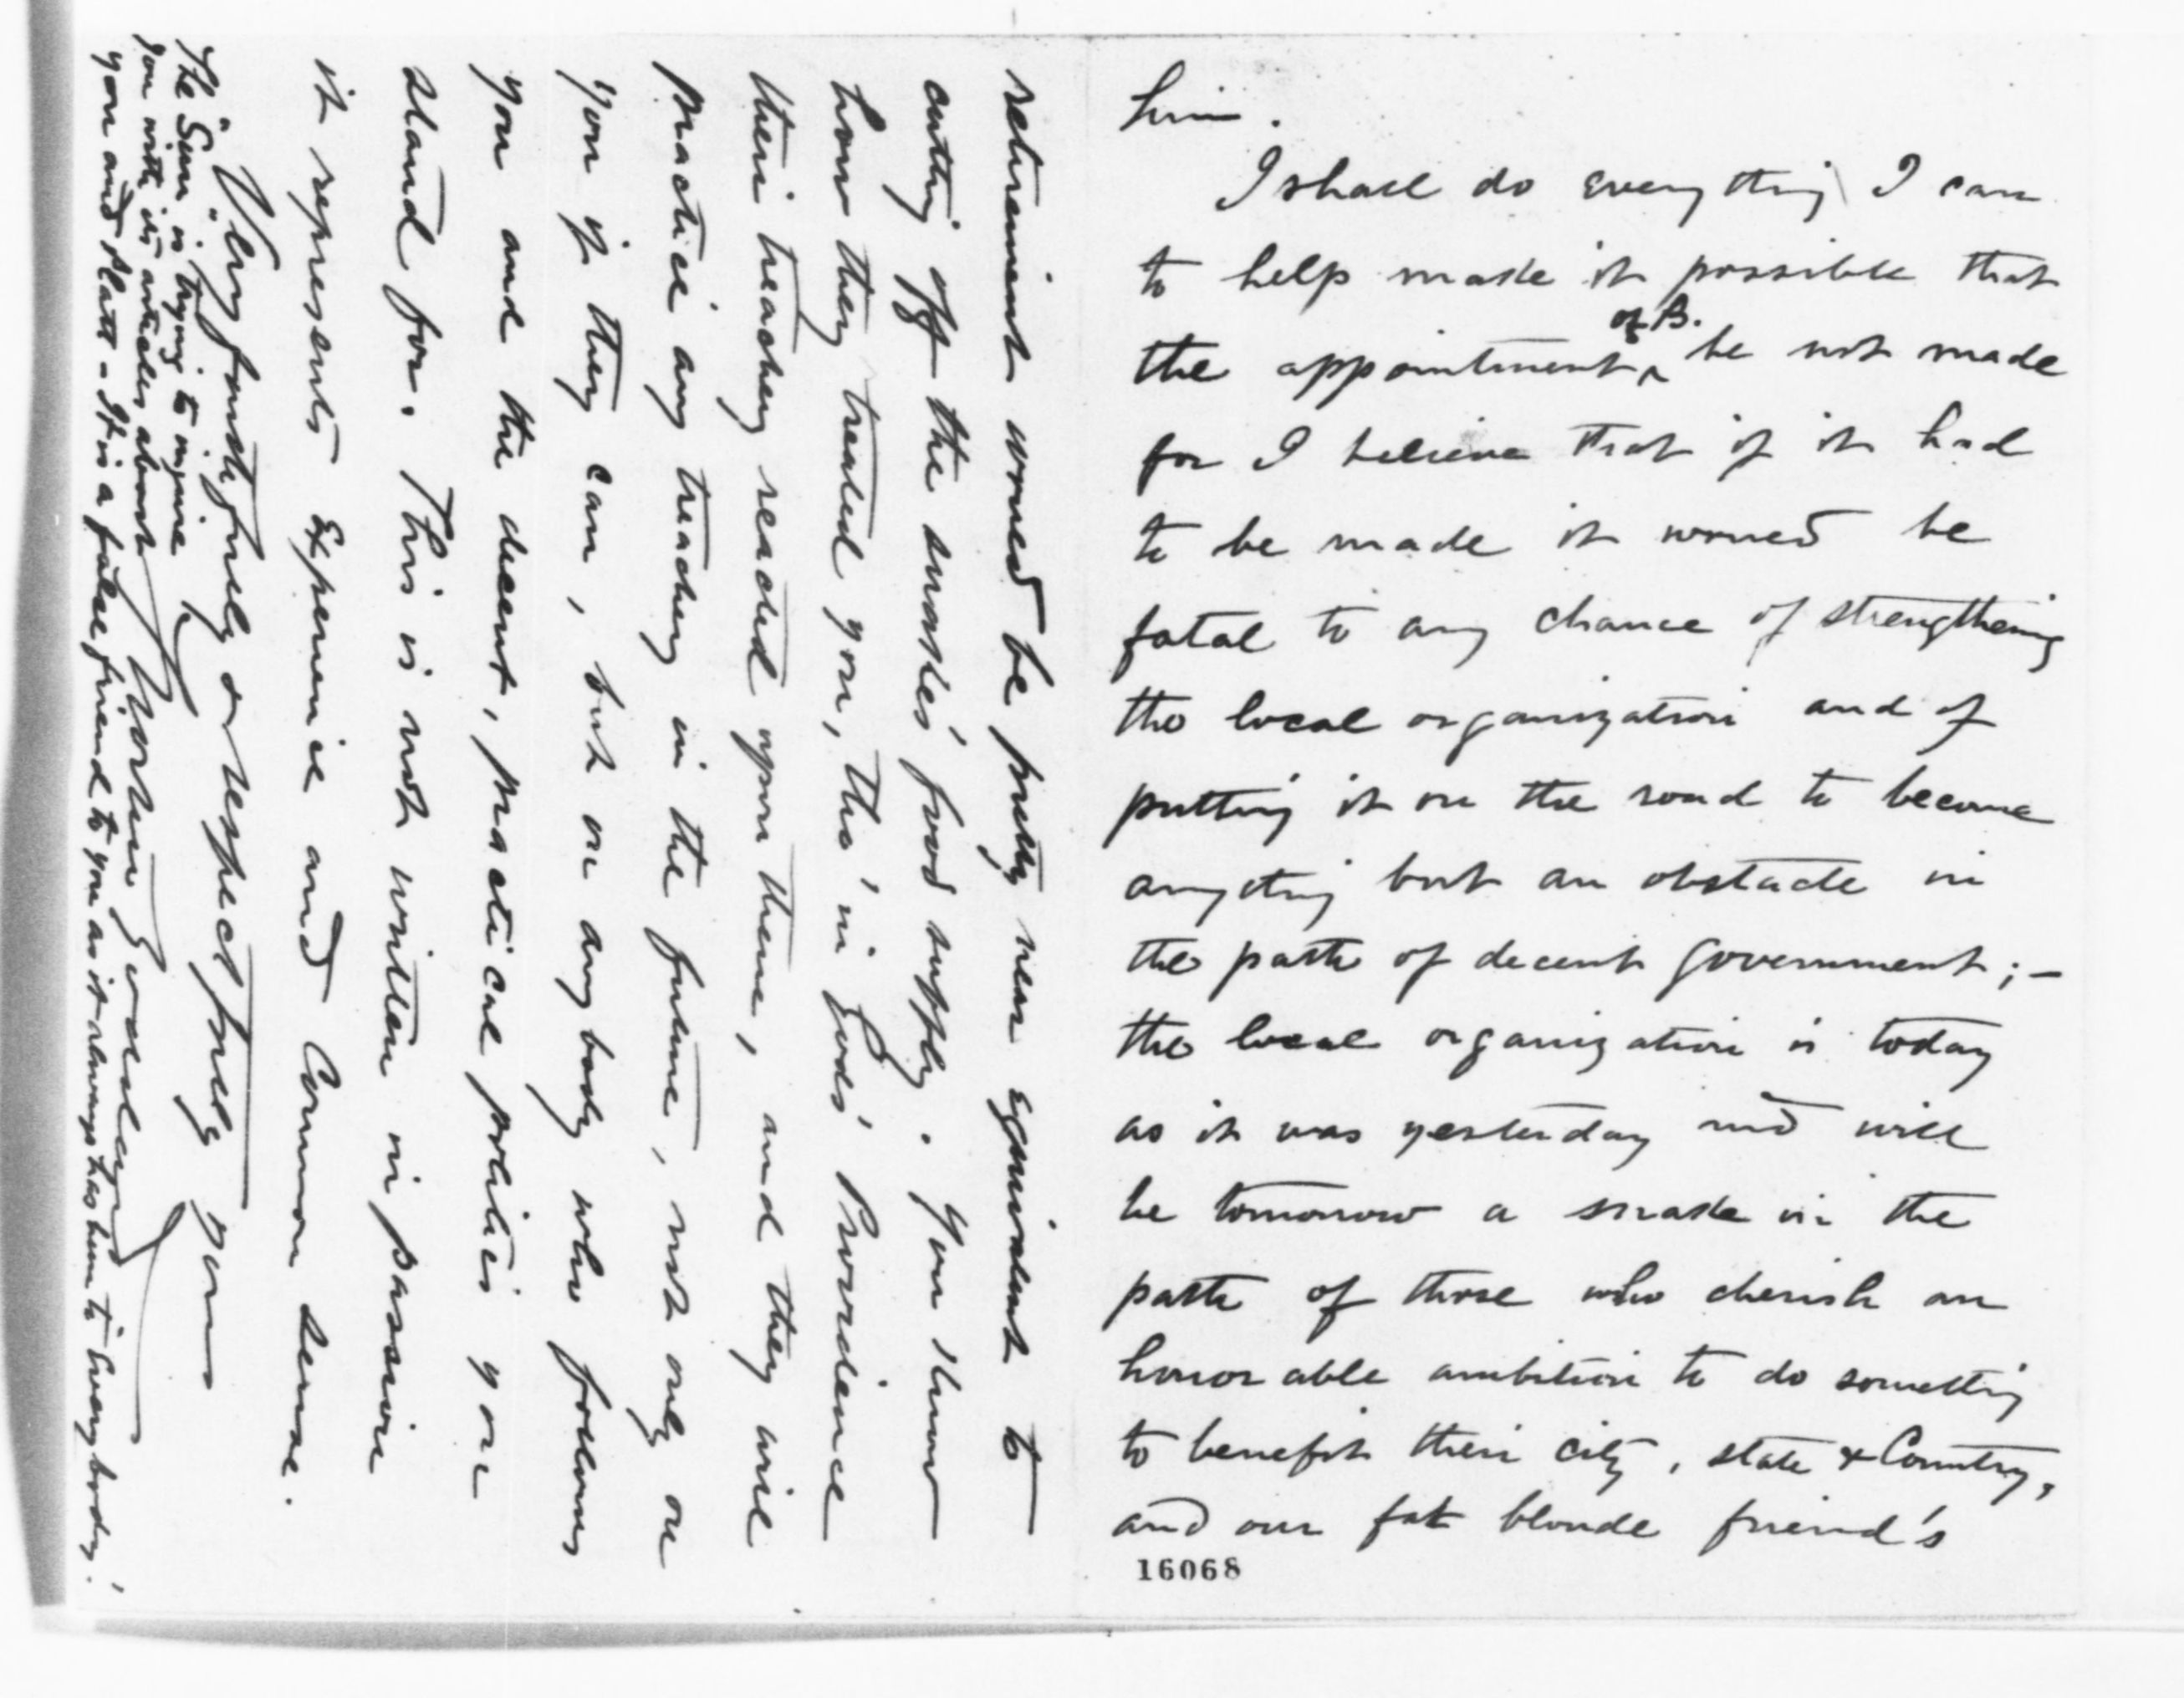 him.
I shall do everything I can
to help make it possible that
the appointment ^ of B. be not made
for I believe that if it had
to be made it would be
fatal to any chance of strengthening
the local organization and of
putting it on the road to become
anything but an obstacle in
the path of decent government;–
the local organization is today
as it was yesterday and will
be tomorrow a snake in the
path of those who cherish an
honorable ambition to do something
to benefit their city, state & Country,
and our fat blonde friend's
16068
retirement would be pretty near equivalent to
cutting off the snakes' food supply. You know
how they treated you, tho' in God's Providence
their treachery reacted upon them, and they will
practice any treachery in the future, not only on
you if they can, but on anybody who follows
you and the decent, practical politics you
stand for. This is not written in passion
it represents Experience and Common sense.
Very faithfully & respectfully yours
Norton Goddard
"The Sun" is trying to injure
you with its articles about
you and Platt - It is a false friend to you as it always has been to Everybody!